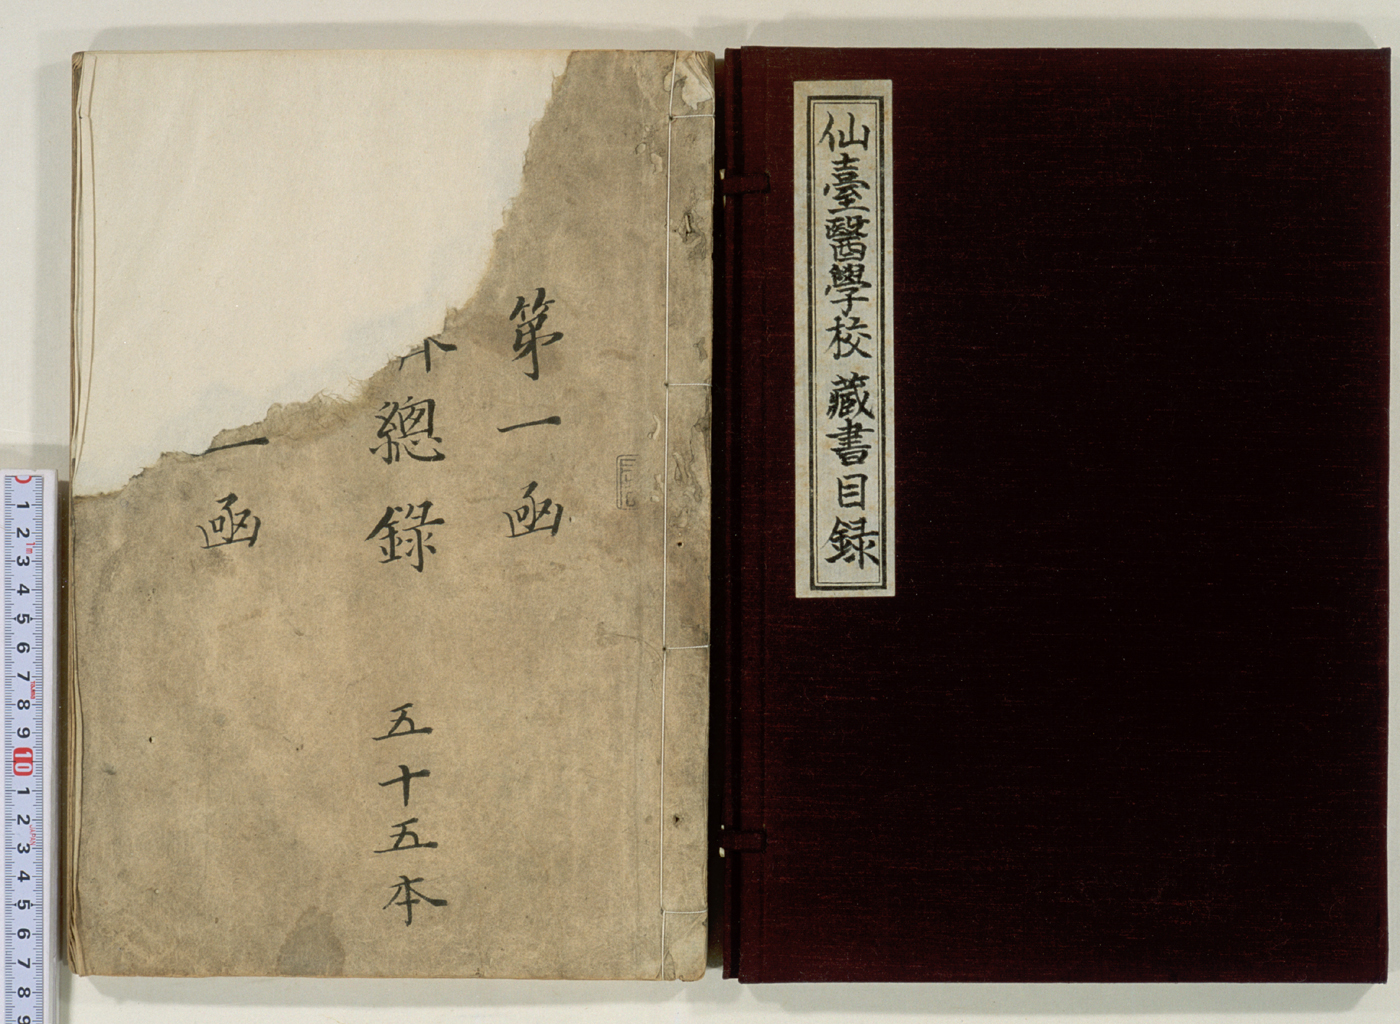 仙臺醫學校藏書目録
第一凾
總錄 五十五本
一凾
1 2 3 4 5 6 7 8 9 10 1 2 3 4 5 6 7 8 9